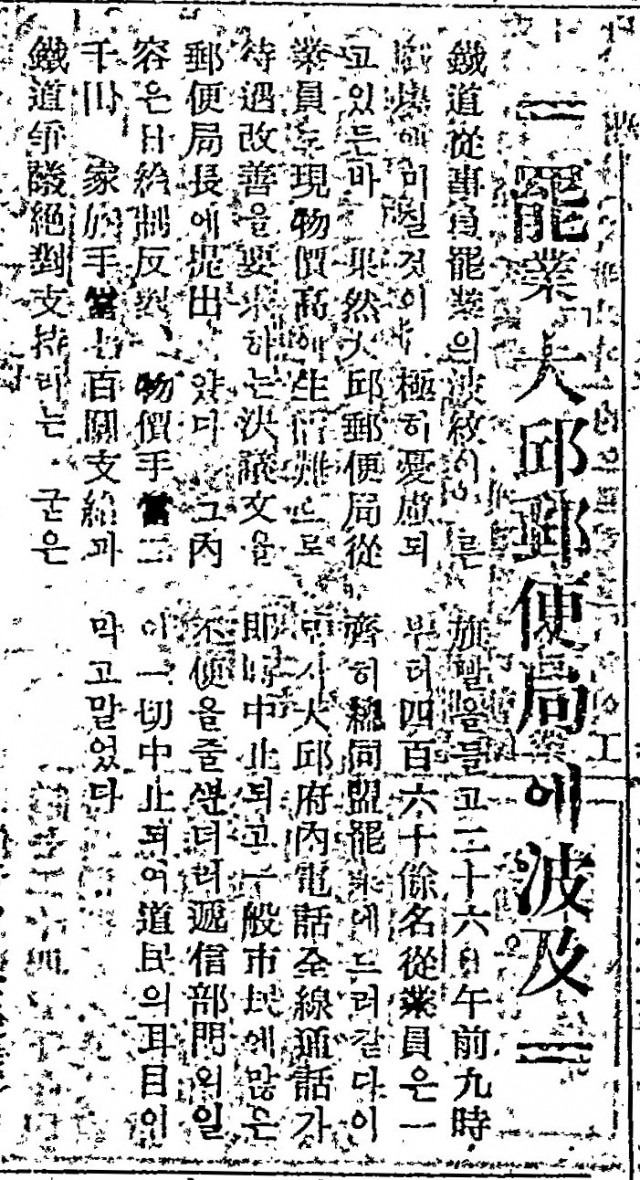 罷業 大邱郵便局에 波及
鐵道從事員罷業의波紋이 른
에미칠것이 極히憂慮되
고있든바 果然大邱郵便局從
業員도現物價高에生活難으로
待遇改善을要求하는決議文을
郵便局長에提出 았다 그內
容은日給制反對、物價手當二
千 家族手當 百圓支給과
鐵道爭議絶對支持하는 굳은
旗빨을들고二十六日午前九時
부터四百六十餘名從業員은一
齊히總同盟罷業에드러갔다이
大邱府內電話全線通話가
即時中止되고一般市民에많은
不便을줄뿐더러遞信部門의일
이一切中止되여道民의耳目이
막고말었다